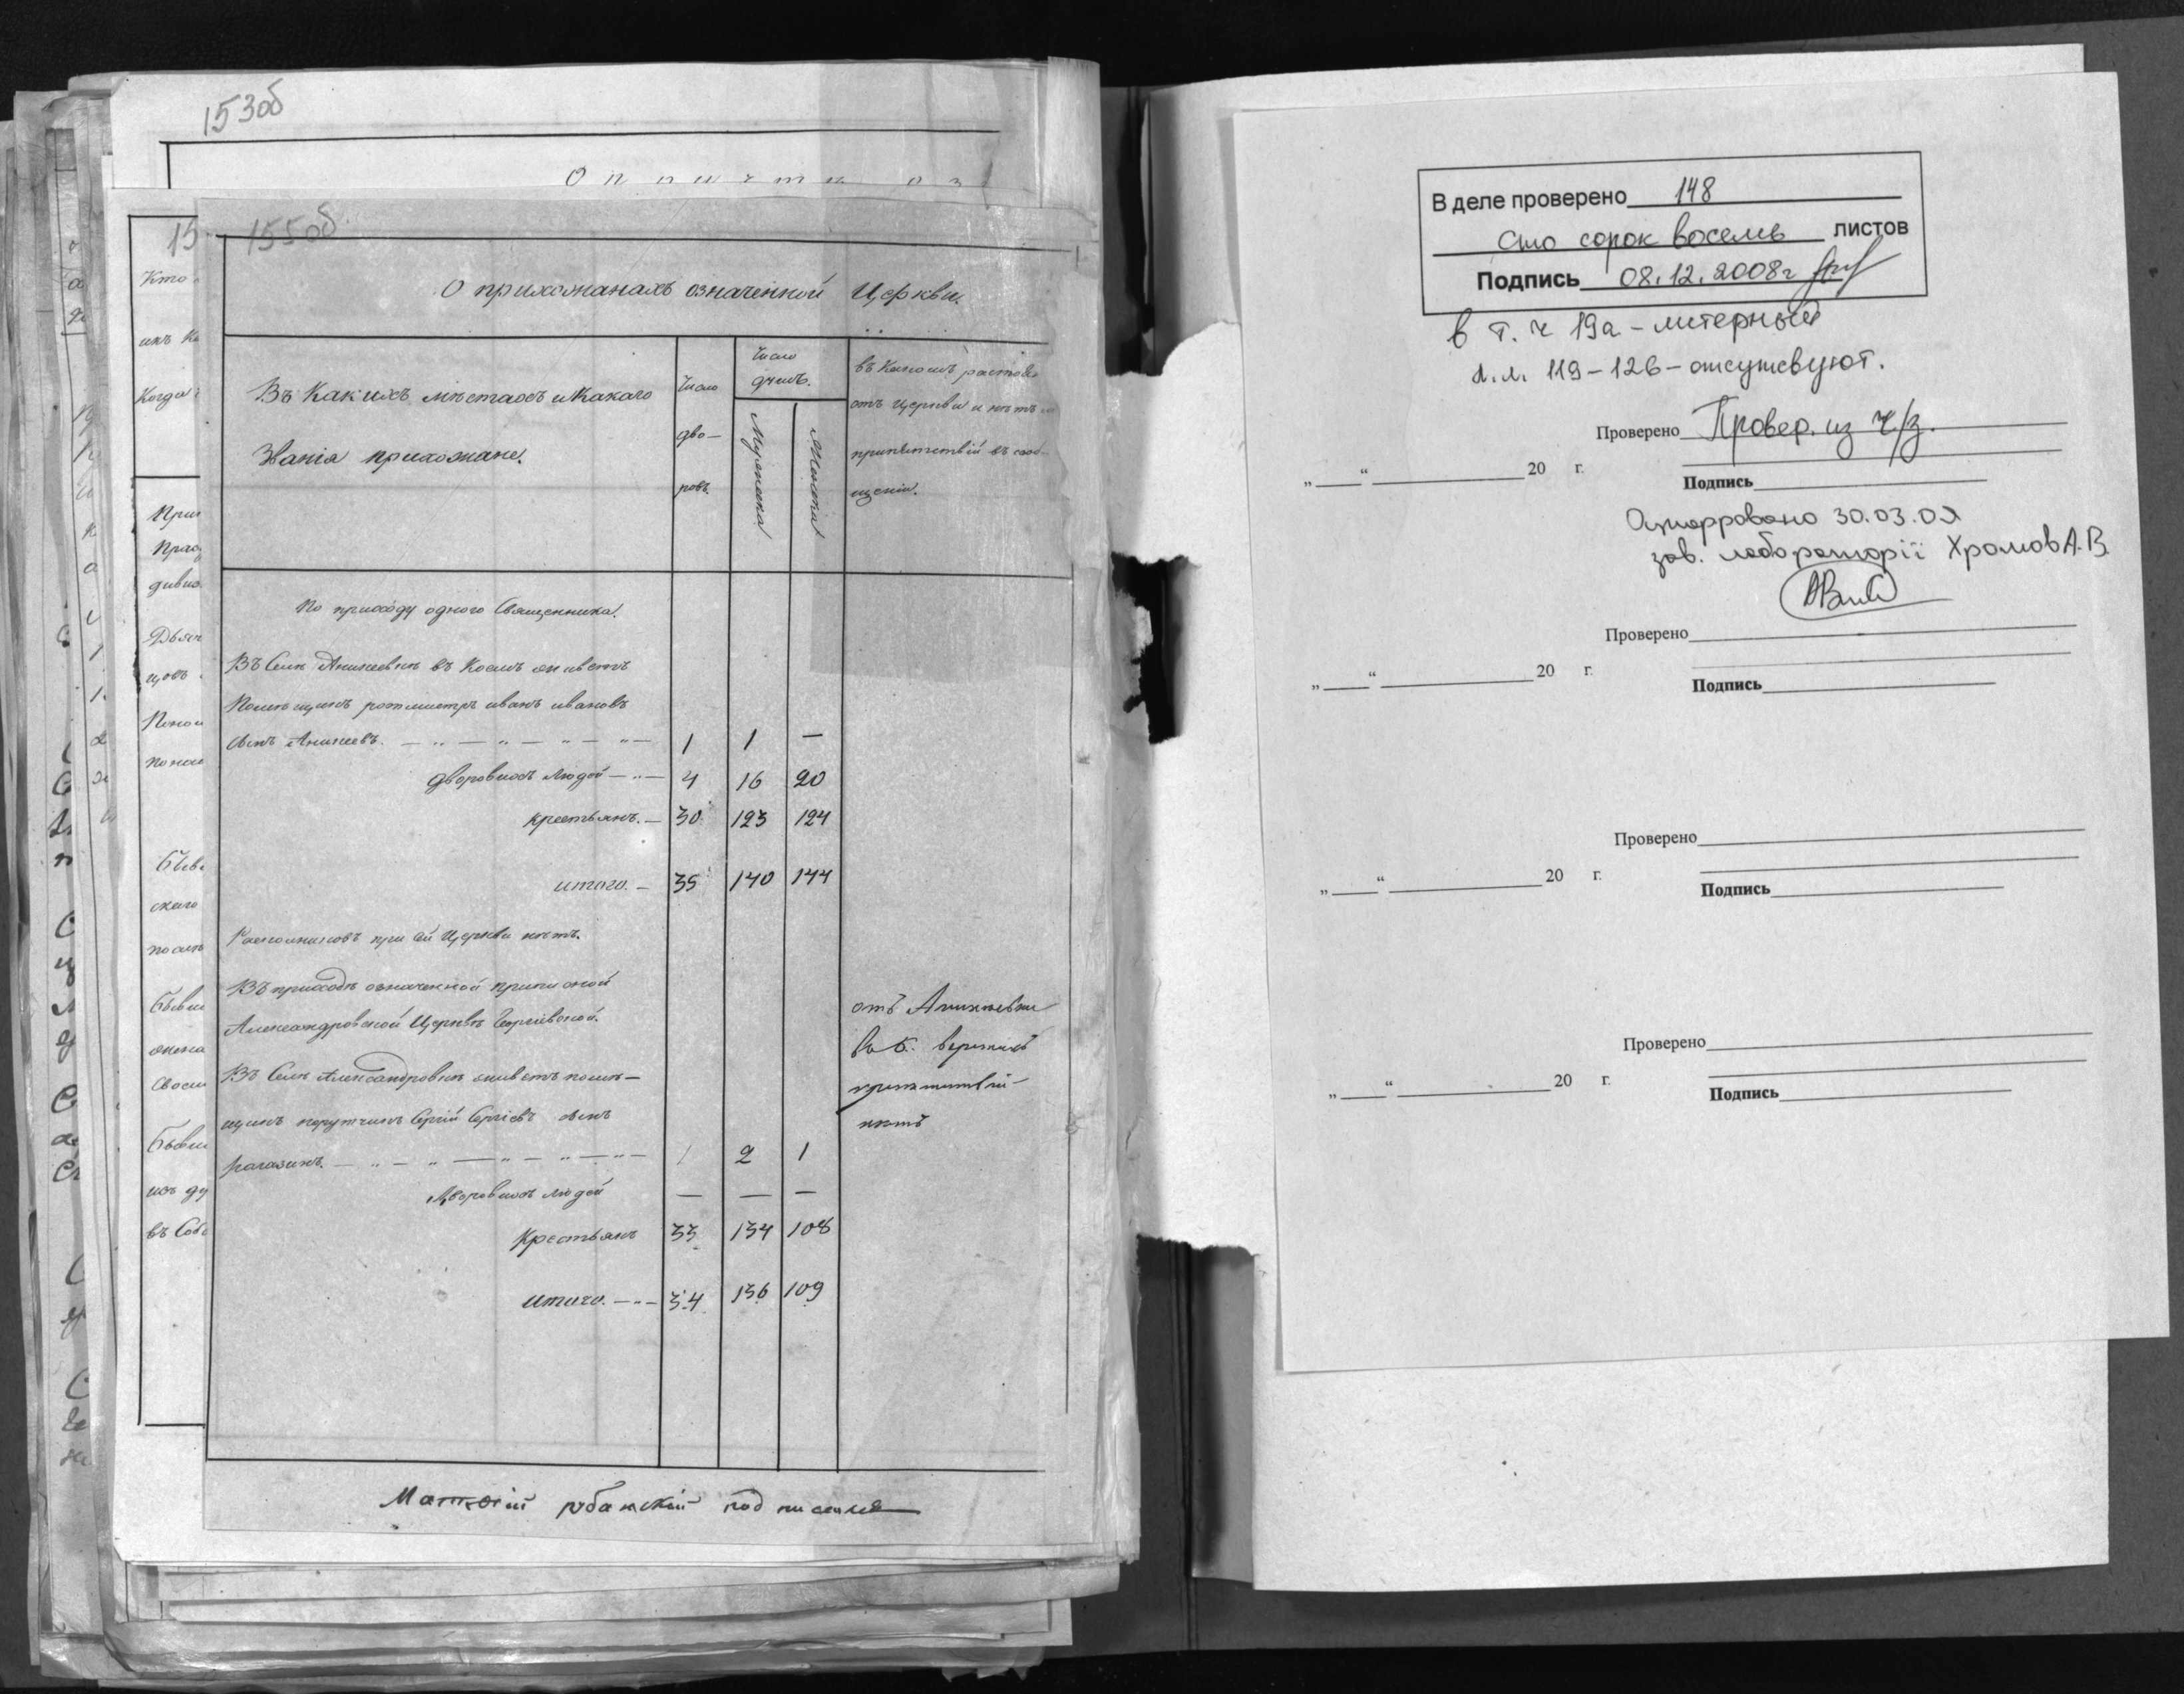 153об
155об.
О прихожанахъ означенной Церкви.
Въ Какихъ мѣстахъ и Какаго
Званія прихожане.
Число
дво—
ровъ.
Число
душъ.
Мужеска
Женска
въ Какомъ разтоя
отъ Церкви и нѣтъ
припятствій въ сооб-
щеніи.
По приходу одного Священника.
Въ Селѣ Аникеевкѣ въ Коемъ живетъ
Помѣщикъ ротмистръ иванъ ивановъ
сынъ Аникеевъ. 1 1 —
дворовыхъ людей 4 16 20
крестьянъ. — 30 123 124
итого. — 35 140 144
при сей Церкви нѣтъ.
Въ приходѣ означенной приписной
Александровской Церквѣ Сергіевской.
Въ Селѣ Александровкѣ живетъ помѣ—
щикъ порутчикъ Сергій Сергіевъ сынъ
1 2 1
Дворовыхъ людей — — —
Крестьянъ 33 134 108
итого. 34 136 109
отъ Аникѣевки
въ 5. верстахъ
припятствій
нѣтъ
Матѳій рубанскій подписался
Кто
ихъ
Когда
В деле проверено 148
сто сорок восемь листов
Подпись 08.12.2008г
в т. ч 19а - литерный
л.л. 119-126 - отсутсвуют.
Проверено Провер. из ч/з.
„ “ 20 г.
Подпись
Оцифровано 30.03.09
зав. лабораторії Хромов А.В.
Проверено
„ “ 20 г.
Подпись
Проверено
„ “ 20 г.
Подпись
Проверено
„ “ 20 г.
Подпись